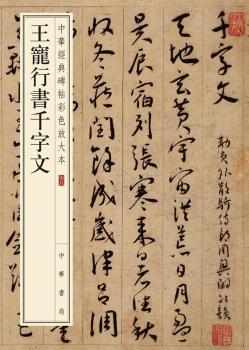 千字文
勅員外散騎侍郎周興嗣次韻
天地玄黃宇宙洪荒日月盈
昃辰宿列張寒來暑往秋
收冬藏閏餘成歲律呂調
中華經典碑帖彩色放大本
王寵行書千字文
中華書局